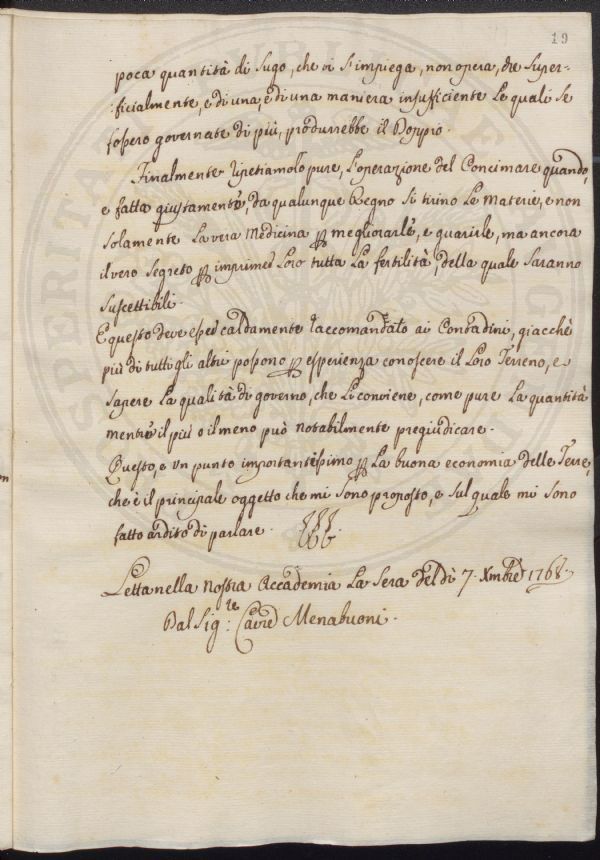 19
poca quantità di Sugo, che vi s'impiega, non opera, che Super-
:ficialmente, e di una, e di una maniera insufficiente Le quali se
fossero governate di più, produrrebbe il Doppio.
Finalmente ripetiamolo pure, L'operazione del Concimare quando,
e fatta giustamente, da qualunque Regno si tirino Le Materie, e non
solamente La vera Medicina per megliorarle, e guarirle, ma ancora
il vero Segreto per imprimere Loro tutta La fertilità, della quale Saranno
suscettibili.
E questo deve esser caldamente raccomandato ai Contadini, giacchè
più di tutti gli altri possono per esperienza conoscere il Loro Terreno, e
sapere La qualità di governo, che Li conviene, come pure La quantità
mentre il più o il meno può notabilmente pregiudicare.
Questo, e un punto importantissimo per La buona economia delle Terre,
che è il principale oggetto che mi Sono proposto, e sul quale mi sono
fatto ardito di parlare.
Letta nella nostra Accademia La Sera del dì 7. Xmbre 1768.
Dal Sig:re Cavre Menabuoni.